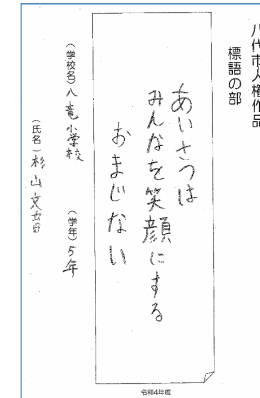 八代市人権作品
標語の部
あいさつは
みんなを笑顔にする
おまじない
(学校名)八竜小学校
(学年)5年
(氏名)杉山
令和4年度